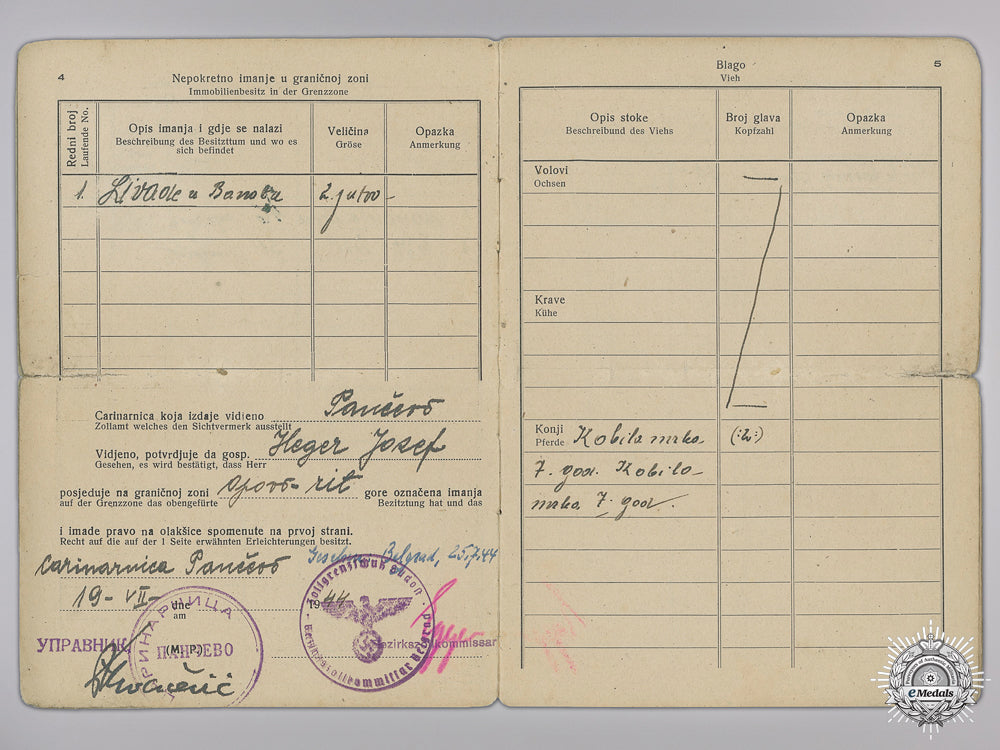 4
Nepokretno imanje u graničnoj zoni
Immobilienbesitz in der Grenzzone
Redni broj
Laufende No.
Opis imanja i gdje se nalazi
Beschreibung des Besitztum und wo es
sich befindet
Veličina
Gröse
Opazka
Anmerkung
1. Livade u 2. jutro -
Carinarnica koja izdaje vidjeno Pančevo
Zollamt welches den Sichtvermerk ausstellt
Vidjeno, potvrdjuje da gosp. Heger Josef
Gesehen, es wird bestätigt, dass Herr
posjeduje na graničnoj zoni rit gore označena imanja
auf der Grenzzone das obengefürte Bezitztung hat und das
i imade pravo na olakšice spomenute na prvoj strani.
Recht auf die auf der 1 Seite erwähnten Erleichterungen besitzt.
Carinarnica Pančevo
Gesehen, Belgrad, 25.7.44
19 - VII - dne 1944
am
УПРАВНИК
(M. P.)
ЦАРИНАРНИЦА
ПАНЧЕВО
Bezirkszollkommissar
5
Blago
Vieh
Opis stoke
Beschreibund des Viehs
Broj glava
Kopfzahl
Opazka
Anmerkung
Volovi —
Ochsen
Krave
Kühe
Konji Kobila mrka (:2:)
Pferde
7. god. Kobila
mrka 7. god.
eMedals